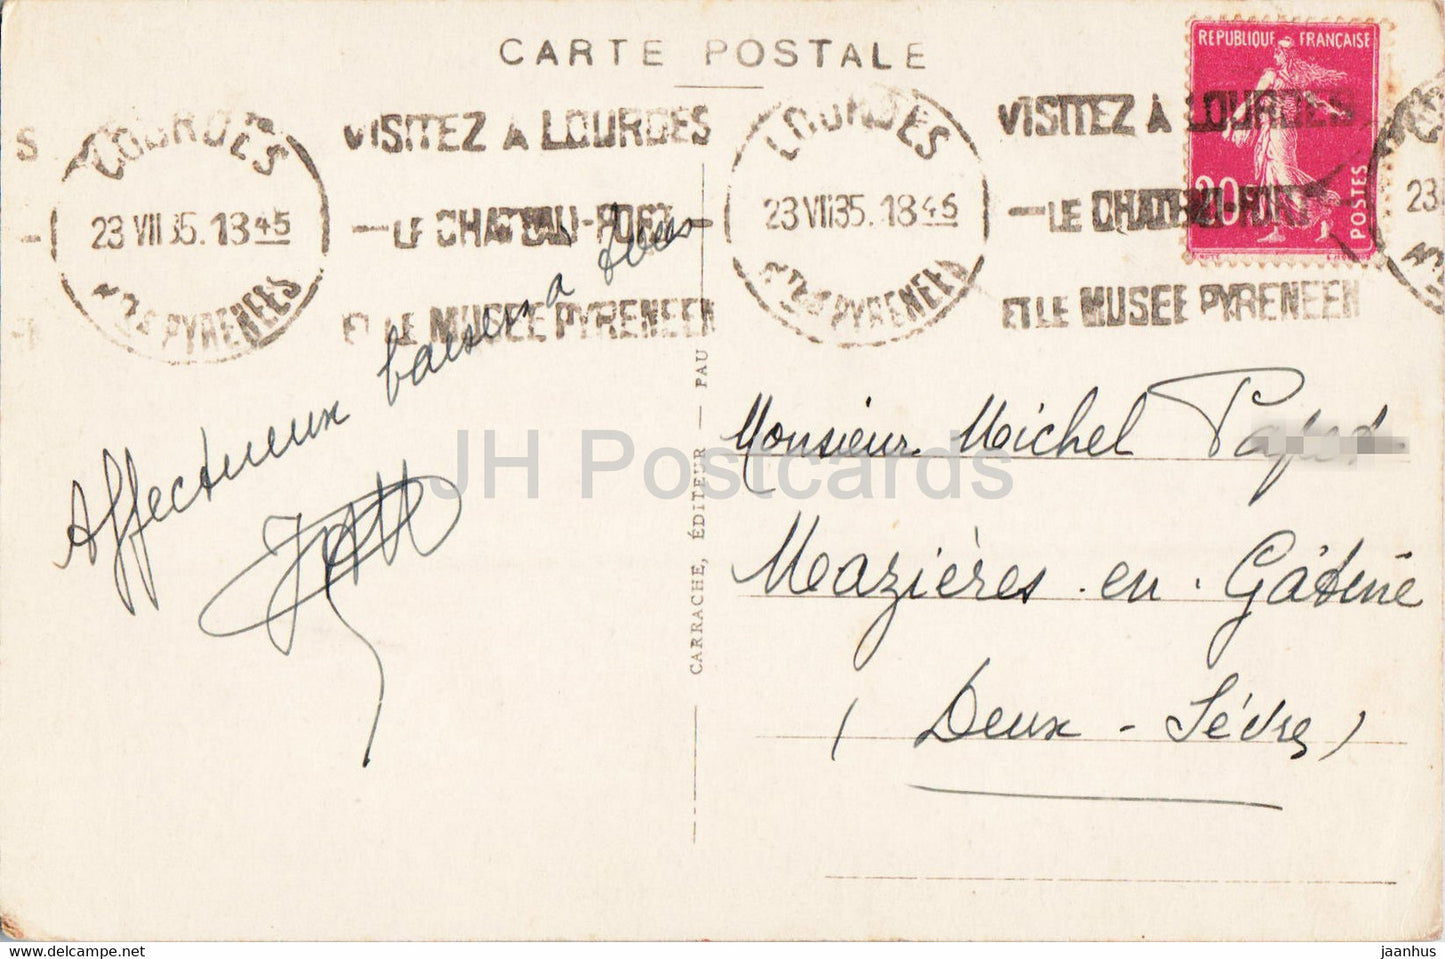 CARTE POSTALE
REPUBLIQUE FRANÇAISE
20
POSTES
LOURDES
23 VII 35. 18 45
HTES PYRENEES
VISITEZ A LOURDES
LE CHATEAU-FORT
ET LE MUSEE PYRENEEN
LOURDES
23 VII 35. 18 45
HTES PYRENEES
VISITEZ A LOURDES
LE CHATEAU-FORT
ET LE MUSEE PYRENEEN
S
23
Affectueux baisers à tous
CARRACHE, ÉDITEUR — PAU
Monsieur Michel
Mazières-en-Gâtine
(Deux-Sèvres)
JH Postcards
jaanhus